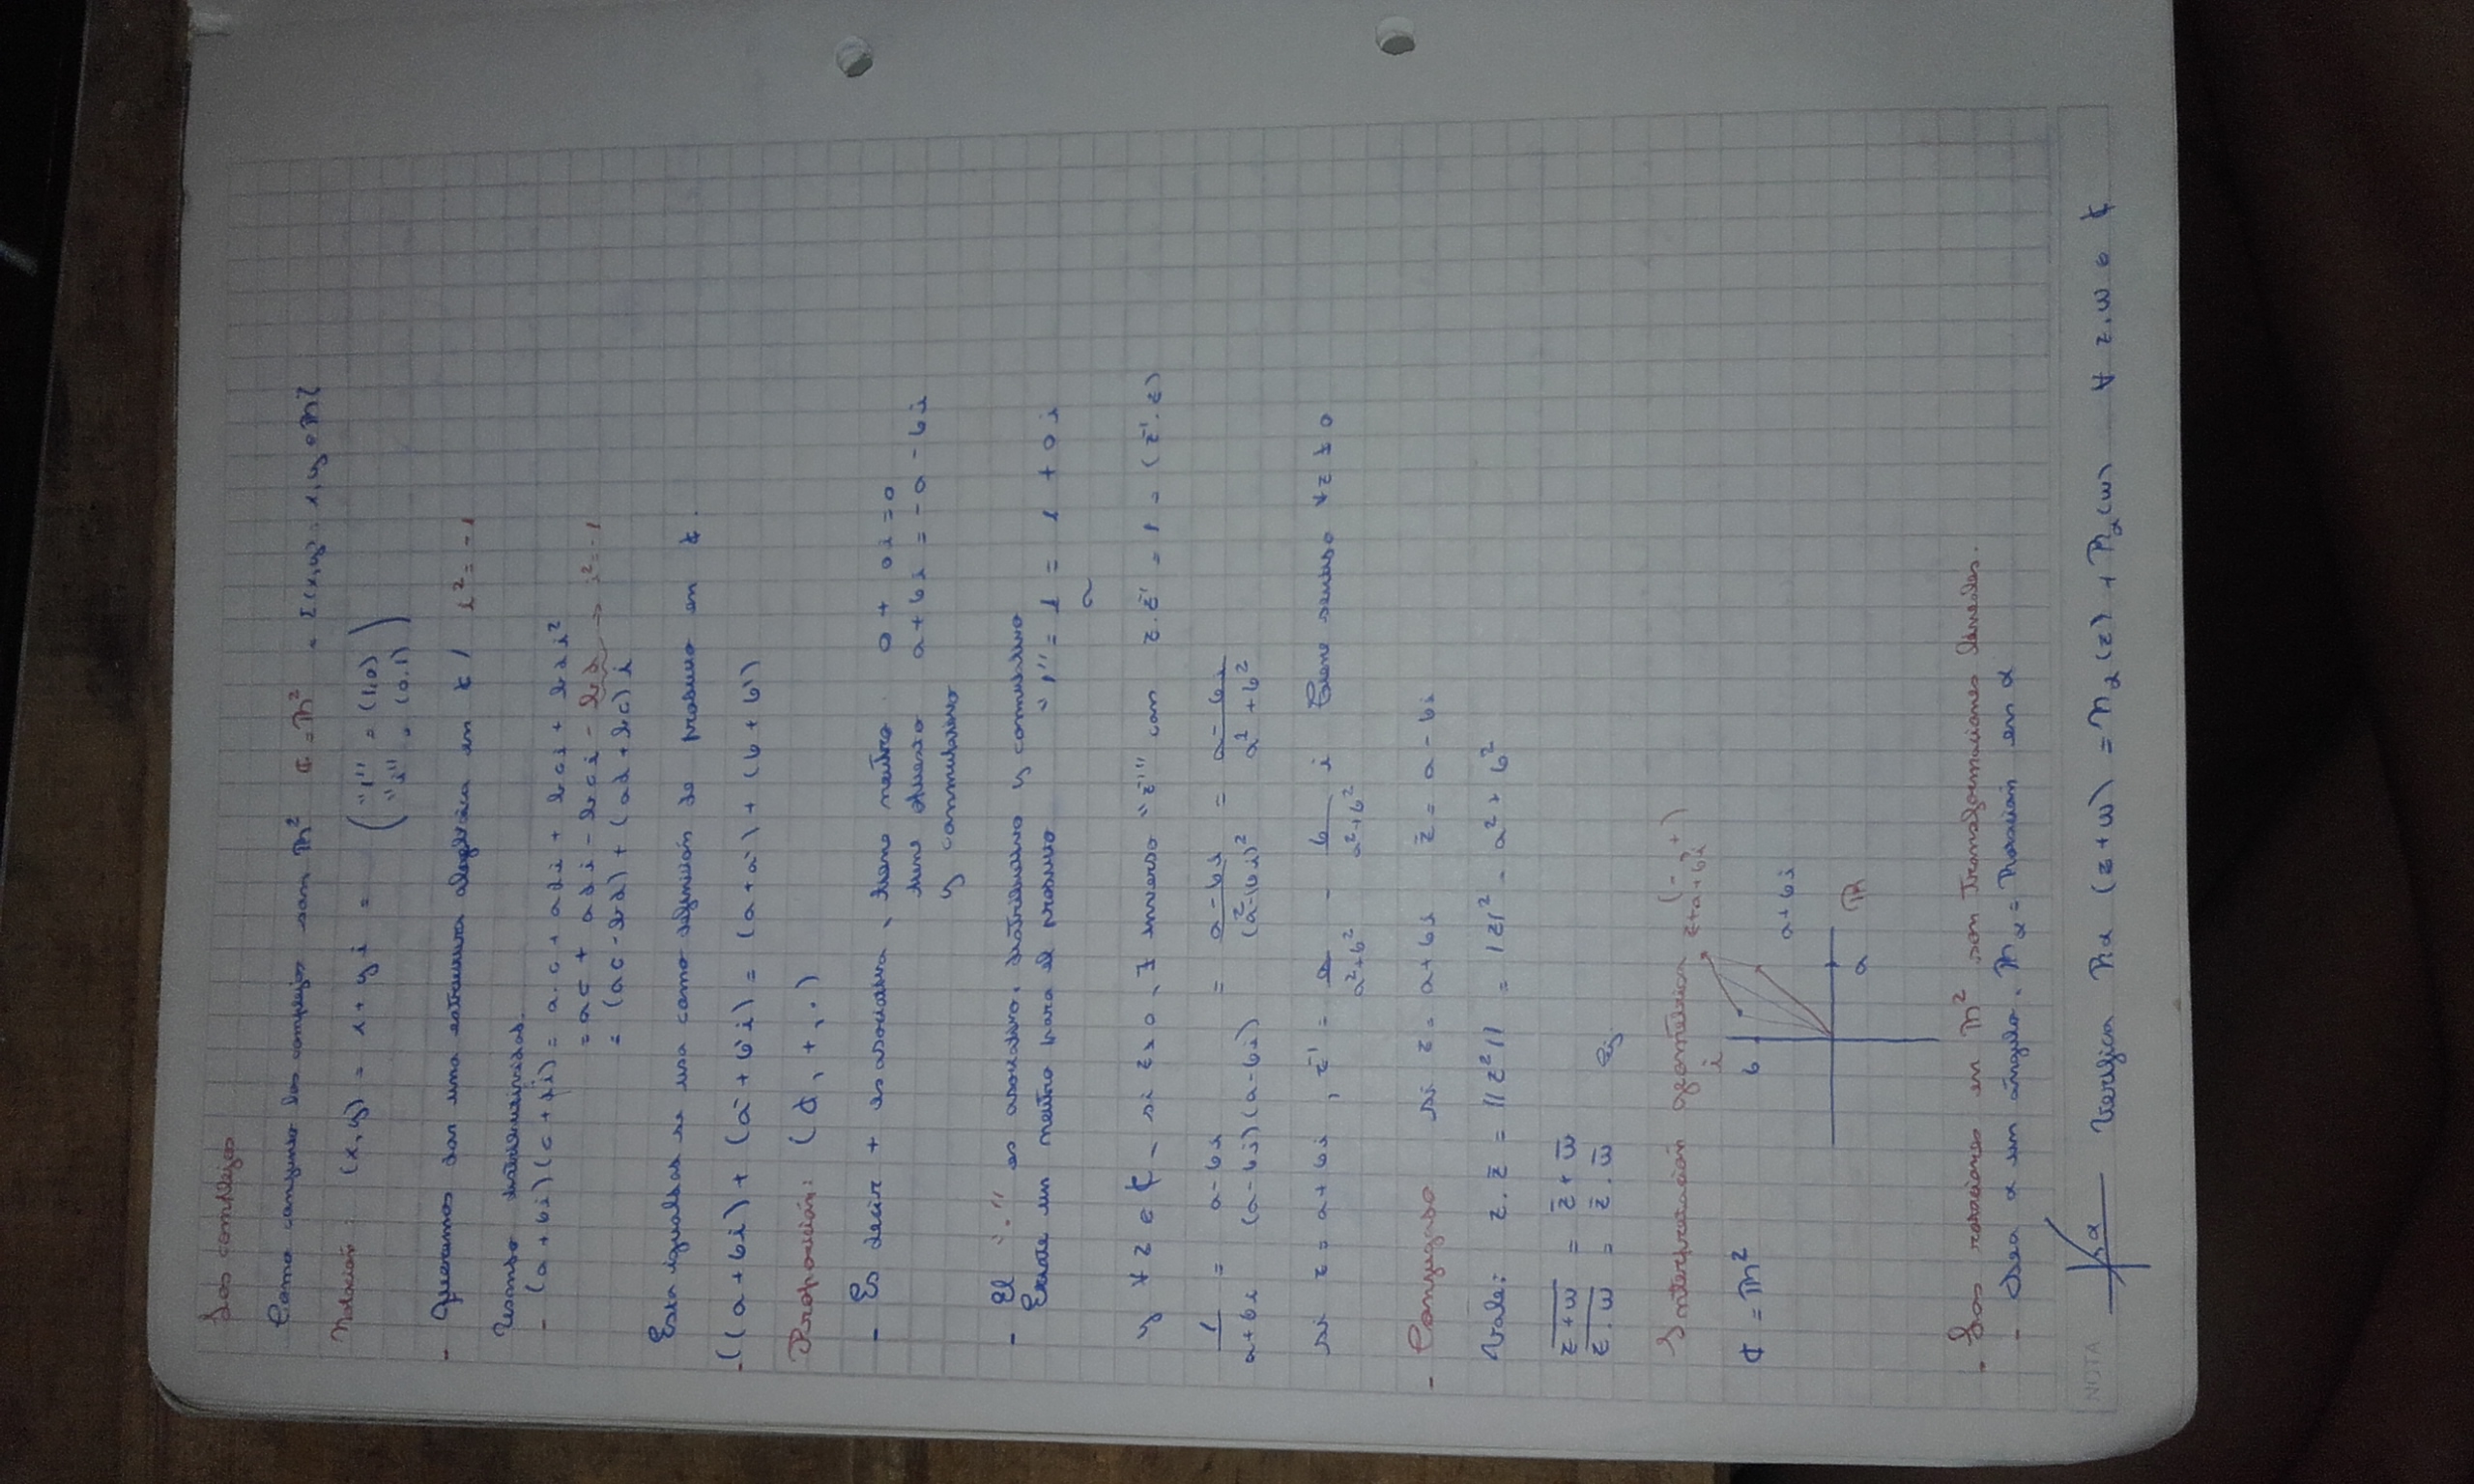 Los complejos
Como conjunto los complejos son ℝ² ℂ = ℝ² = {(x,y) : x, y ∈ ℝ}
Notación: (x, y) = x + y i = ( "1" = (1,0)
"i" = (0,1) )
- Queremos dar una estructura algebraica en ℂ / i² = -1
Usando distributividad.
- (a + bi)(c + di) = a.c + adi + bci + bdi²
= ac + adi - bci - bd → i² = -1
= (ac - bd) + (ad + bc) i
Esta igualdad se usa como definición de producto en ℂ.
- ((a + bi) + (a' + b'i) = (a + a') + (b + b')
Proposición: (ℂ, +, .)
- Es decir + es asociativa, tiene neutro 0 + 0i = 0
tiene opuesto a + bi = -a - bi
y conmutativo
- El "." es asociativo, distributivo y conmutativo
Existe un neutro para el producto "1" = 1 = 1 + 0i
y ∀ z ∈ ℂ, si z ≠ 0, ∃ inverso "z⁻¹" con z.z⁻¹ = 1 = (z⁻¹.z)
1/(a+bi) = a-bi (a-bi)(a-bi) = (a-bi)/(a²-(bi)²) = (a-bi)/(a²+b²)
si z = a + bi, z⁻¹ = a/(a²+b²) - b/(a²+b²) i tiene sentido ∀z ≠ 0
- Conjugado si z = a + bi z̄ = a - bi
Vale: z . z̄ = ||z²|| = |z|² = a² + b²
\overline{z + w} = z̄ + w̄
\overline{z . w} = z̄ . w̄ Ej.
Interpretación geométrica (- , +)
z+a+bi
i
ℂ = ℝ² b
a+bi
a ℝ
- Las rotaciones en ℝ² son Transformaciones lineales.
- Sea α un ángulo, R_α = Rotación en α
NOTA α Verifica R_α (z + w) = R_α(z) + R_α(w) ∀ z, w ∈ ℂ